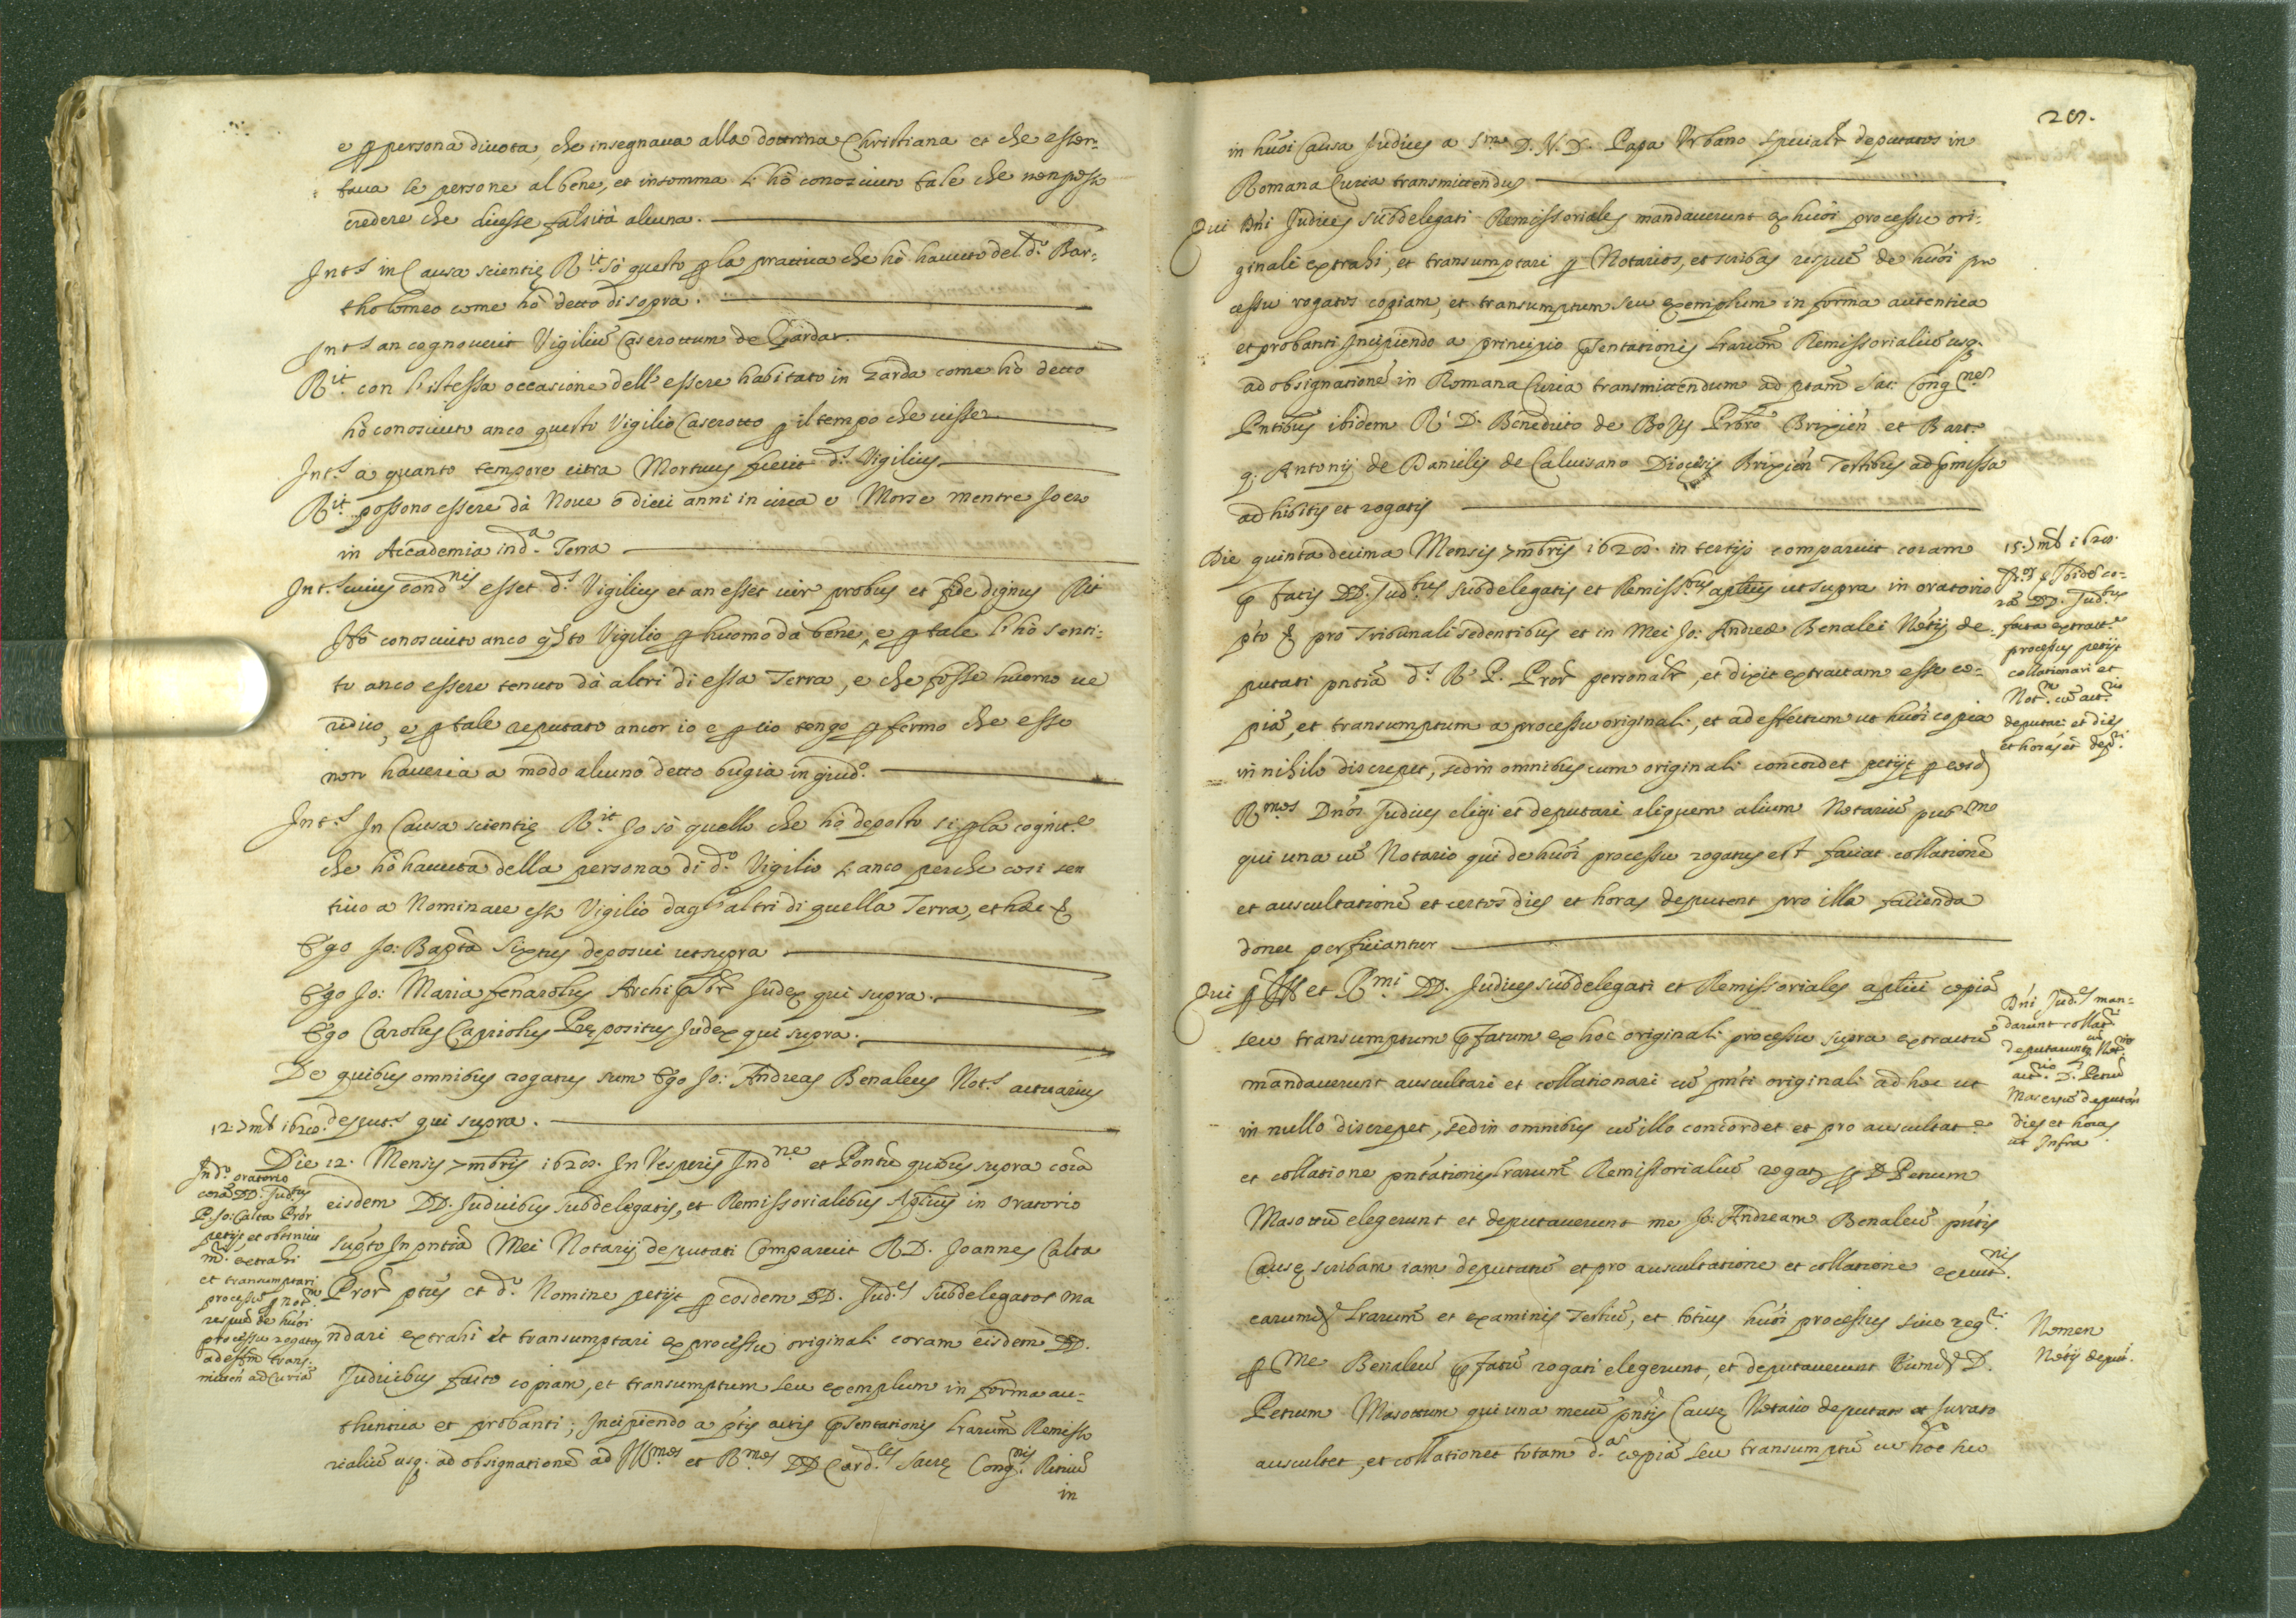 e p persona divota, che insegnava alla dottrina Christiana et che essor-
tava le persone al bene, et insomma l'hò conosciuto tale che non posso
credere che dicesse falsità alcuna.
Int.s in Causa scientię R.it sò questo p la prattica che hò havuto del d.o Bar-
tholomeo come hò detto di sopra.
Int.s an cognoverit Vigiliū Caserottum de Garda.
R.it con l'istessa occasione dell'essere habitato in Garda come hò detto
hò conosciuto anco questo Vigilio Caserotto p il tempo che visse
Int.s a quanto tempore citra Mortuus fuerit d.s Vigilius
R.it possono essere dà Nove o dieci anni in circa e Morse mentre Io ero
in Accademia in d.a Terra
Int.s cuius cond.nis esset d.s Vigilius et an esset vir probus et fide dignus Rit
Hò conosciuto anco q̄sto Vigilio p huomo dà bene, e p tale l'hò senti-
to anco essere tenuto dà altri di essa Terra, e che fosse huomo ve
ridico, e p tale reputato ancor io e p cio tengo p fermo che esso
non haveria a modo alcuno detto bugia in giud.o
Int.s In Causa scientię R.it Io sò quello che hò deposto si p la cognit.e
che hò havuta della persona di d.o Vigilio si anco perche così sen
tivo a Nominare esso Vigilio dagl'altri di quella Terra, et hæc &
Ego Jo: Bapta Sixtus deposui ut supra
Ego Jo: Maria fenarolus Archipbr Judex qui supra.
Ego Carolus Capriolus Prępositus Judex qui supra.
De quibus omnibus rogatus sum Ego Jo: Andreas Benaleus Not.s actuarius
deput.s qui supra.
12. 7mb 1628.
Die 12. Mensis 7mbris 1628. In Vesperis Ind.ne et Pontū quibus supra corā
eisdem DD. Judicibus subdelegatis, et Remissorialibus Aplicis in Oratorio
sup̄to In pntiā Mei Notarij deputati Comparuit R.D. Joannes Calta
Pror ptūs et d.o Nomine petijt p eosdem DD. Jud.es subdelegatos ma
ndari extrahi et transumptari ex processu originali coram eisdem DD.
Judicibus facto copiam, et transumptum seu exemplum in forma au-
thentica et probanti; Incipiendo a ptis actis pn̄tentationis Lrarum̄ Remisso
rialiū usq. ad obsignationē ad Ill.mos et R.mos DD Card.les Sacrę Cong.nis Rituū
in
In d.o oratorio
corā DD. Jud.bus
P. Jo: Calta Pror
petijt et obtinuit
m. extrahi
et transumptari
processū p not.m
respuē de hūōi
processu rogatos
ad effm trans-
mitten ad Curiā
in hūōi Causa Judices a S.mo D.N.D. Papa Urbano spūialr deputatos in
Romana Curia transmittendus
Qui Dn̄i Judices subdelegati Remissoriales mandaverunt ex hūōi processu ori-
ginali extrahi, et transumptari p Notarios, et scribas respuē de hūōi pro
cessu rogatos copiam, et transumptum seu exemplum in forma autentica
et probanti Incipiendo a principio p̄sentationis Lrarum̄ Remissorialiū usq.
ad obsignationē in Romana Curia transmittendum ad ptam̄ Sac: Cong.nes
Pntibus ibidem R. D. Benedicto de Bojis Prbro Brixien et Bart.o
q. Antonij de Daniēlis de Calvisano Diocesis Brixien Testibus ad p̄missa
adhibitis et rogatis
Die quinta decima Mensis 7mbris 1628. in tertijs comparuit coram
p̄fatis DD. Jud.bus subdelegatis et Remiss.bus aplicis ut supra in oratorio
p̄to & pro Tribunali sedentibus et in Mei Jo: Andreæ Benalei Notij de-
putati pntiā d.s R. P. Pror personalr, et dixit extractam esse co-
piā, et transumptum a processu originali, et ad effectum ut hūōi copia
in nihilo discrepet, sed in omnibus cum originali concordet petijt p eosd
R.mos Dnos Judices eligi et deputari aliquem alium Notariū pub.m
qui una cū Notario qui de hūōi processu rogatus est faciat collationē
et auscultationē et certos dies et horas deputent pro illa facienda
donec perficiantur
15. 7mb 1628.
Pr.or p̄ Ibid. co-
rā DD. Jud.bus
facta extract.e
processus petijt
collationari et
Not.m cū act.rio
deputari et dies
et horas et dep.i
Qui p Ill et R.mi DD. Judices subdelegati et Remissoriales aplici copiā
seu transumptum p̄fatum ex hoc originali processu supra extractū
mandaverunt auscultari et collationari cū pnti originali ad hoc ut
in nullo discrepet, sed in omnibus cū illo concordet et pro auscultat.e
et collatione pntationis Lrarum̄ Remissorialiū rogat p D Petrum
Masottū elegerunt et deputaverunt me Jo: Andream Benaleū pntis
Causę scribam iam deputatū et pro auscultatione et collatione execut.nis
earumd Lrarum̄ et examinis Testiū, et totius hūōi processus sive reg.ri
p Me Benaleū p̄fatū rogati elegerunt, et deputaverunt Eumd D.
Petrum Masottum qui una mecū pntis Causę Notario deputato et Jurato
auscultet, et collationet totam d.a copiā seu transumptū cū hoc hūo
Dn̄i Jud.es man-
darunt collat
deputarunt Not.rio
D. Petrū
Masottū deputan
dies et horas
ut Infra
Nomen
Notij deput.